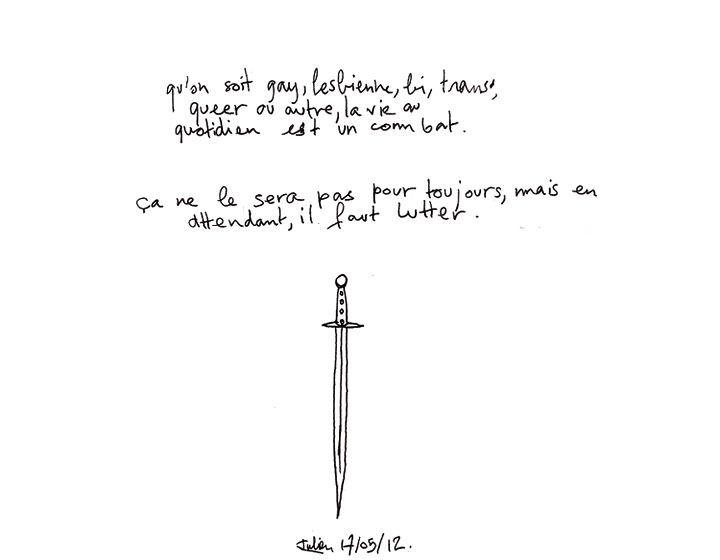 qu'on soit gay, lesbienne, bi, trans,
queer ou autre, la vie au
quotidien est un combat.
ça ne le sera pas pour toujours, mais en
attendant, il faut lutter.
Julien 17/05/12.